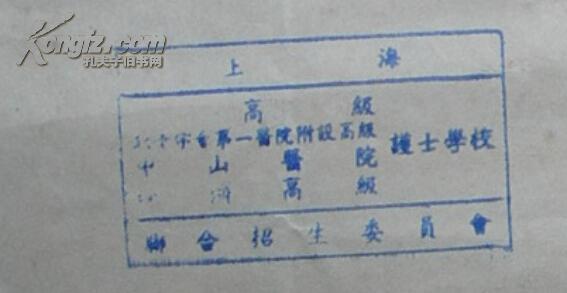 Kongfz.com
孔夫子旧书网
上海
高級
第一醫院附設高級
中山醫院
高級
護士學校
聯合招生委員會